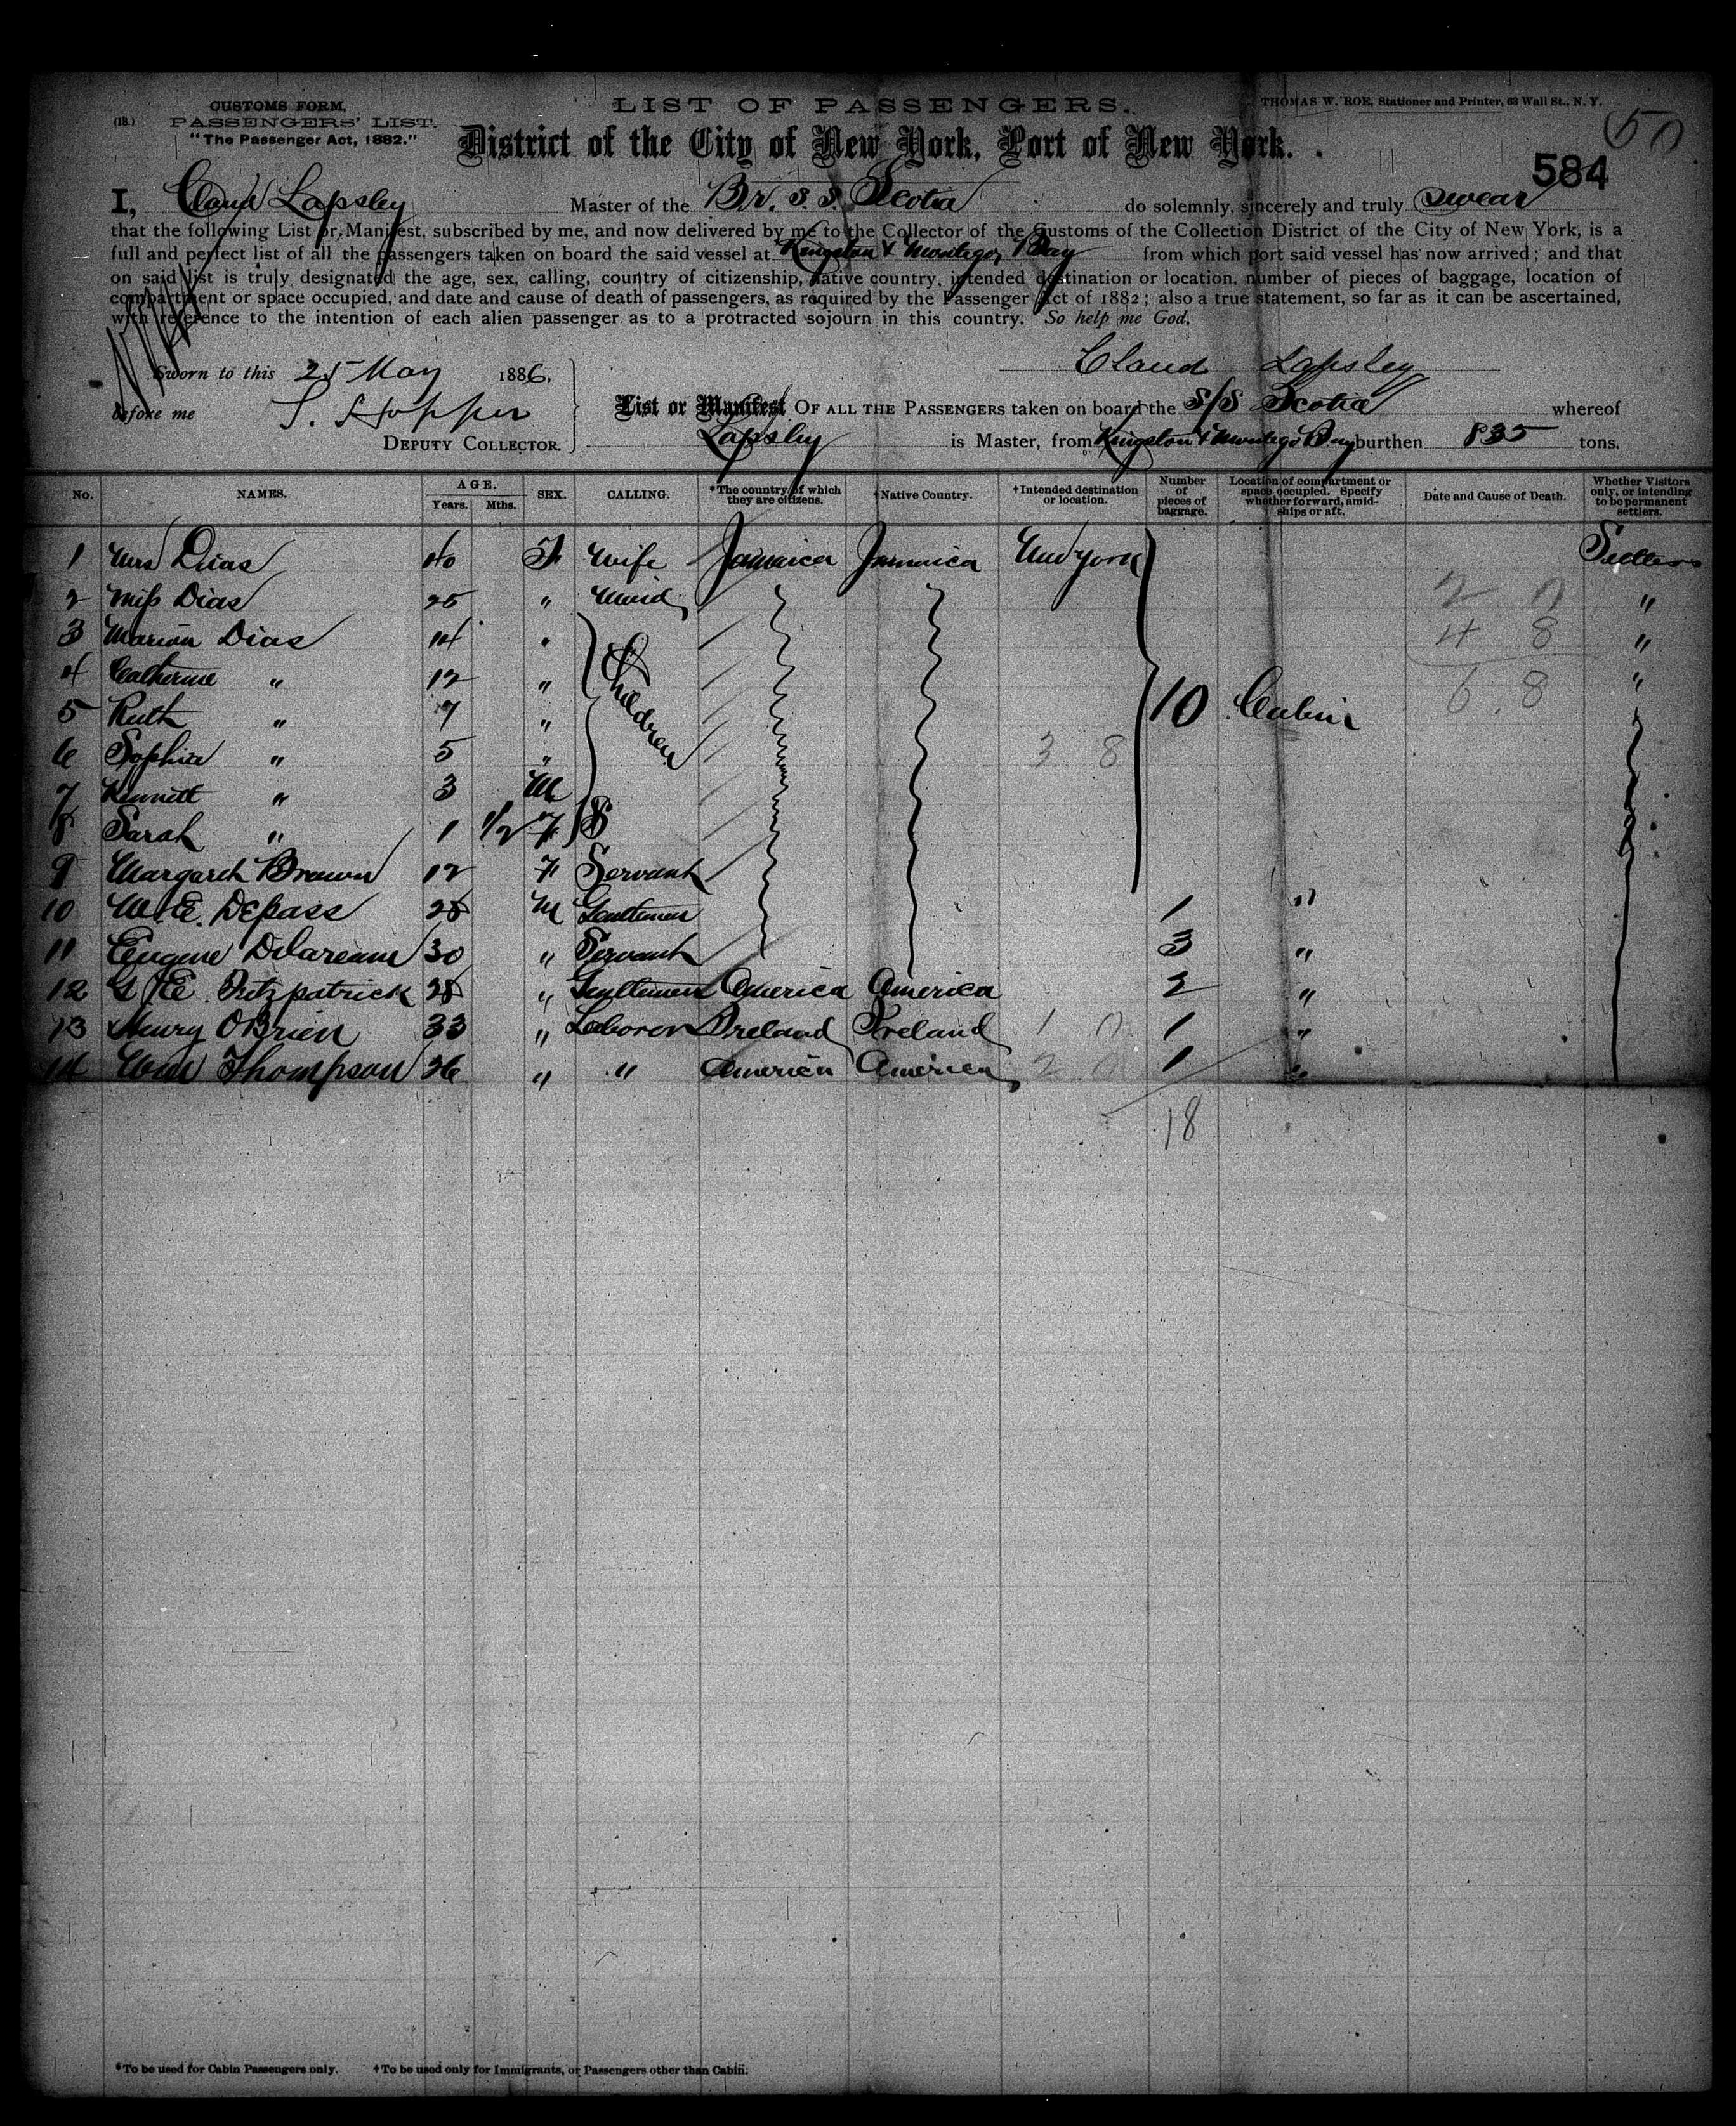 CUSTOMS FORM,
(18.) PASSENGERS' LIST.
"The Passenger Act, 1882."
LIST OF PASSENGERS.
THOMAS W. ROE, Stationer and Printer, 63 Wall St., N. Y.
50
District of the City of New York, Port of New York.
584
I, Claud Lapsley Master of the Br. S. S. Scotia do solemnly, sincerely and truly swear
that the following List or Manifest, subscribed by me, and now delivered by me to the Collector of the Customs of the Collection District of the City of New York, is a
full and perfect list of all the passengers taken on board the said vessel at Kingston & Montego Bay from which port said vessel has now arrived; and that
on said list is truly designated the age, sex, calling, country of citizenship, native country, intended destination or location, number of pieces of baggage, location of
compartment or space occupied, and date and cause of death of passengers, as required by the Passenger Act of 1882; also a true statement, so far as it can be ascertained,
with reference to the intention of each alien passenger as to a protracted sojourn in this country. So help me God.
Sworn to this 25 May 1886,
Claud Lapsley
before me S. Hopper
DEPUTY COLLECTOR.
List or Manifest OF ALL THE PASSENGERS taken on board the S/S Scotia whereof
Lapsley is Master, from Kingston & Montego Bay burthen 835 tons.
No. NAMES. AGE. Years. Mths. SEX. CALLING. *The country of which they are citizens. †Native Country. †Intended destination or location. Number of pieces of baggage. Location of compartment or space occupied. Specify whether forward, amidships or aft. Date and Cause of Death. Whether Visitors only, or intending to be permanent settlers.
1 Mrs Dias 40 F Wife Jamaica Jamaica New York Settlers
2 Miss Dias 25 " Maid 2 0 "
3 Marion Dias 14 " Children 4 8 "
4 Catherine " 12 " 10 Cabin 6 8 "
5 Ruth " 7 "
6 Sophia " 5 " 3 8
7 Kennett " 3 M
8 Sarah " 1 1/2 F
9 Margaret Brown 12 F Servant
10 W. E. DePass 28 M Gentleman 1 "
11 Eugene 30 " Servant 3 "
12 G E Fitzpatrick 28 " Gentleman America America 2 "
13 Henry OBrien 33 " Laborer Ireland Ireland 1 0 1 "
14 Wm Thompson 26 " " America America 2 0 1 "
18
*To be used for Cabin Passengers only. †To be used only for Immigrants, or Passengers other than Cabin.